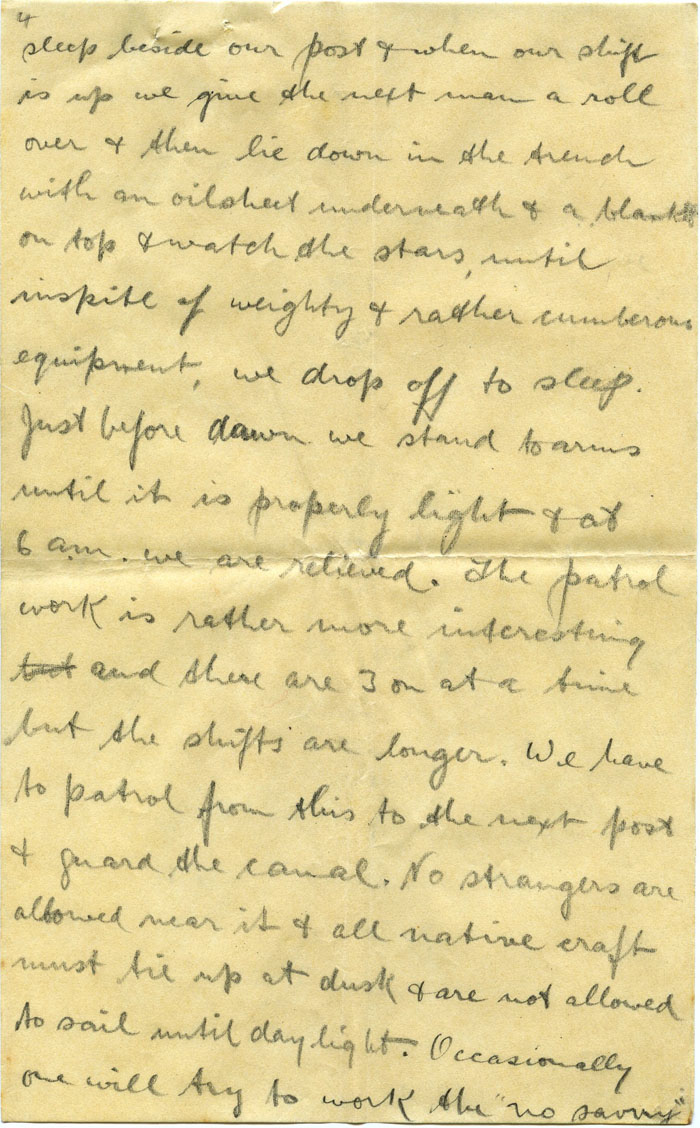 4
sleep beside our post & when our shift
is up we give the next man a roll
over & then lie down in the trench
with an oilsheet underneath & a blanket
on top & watch the stars, until
inspite of weighty & rather cumberous
equipment, we drop off to sleep.
Just before dawn we stand to arms
until it is properly light & at
6 a.m. we are relieved. The patrol
work is rather more interesting
but and there are 3 on at a time
but the shifts are longer. We have
to patrol from this to the next post
& guard the canal. No strangers are
allowed near it & all native craft
must tie up at dusk & are not allowed
to sail until daylight. Occasionally
one will try to work the "no savvy"